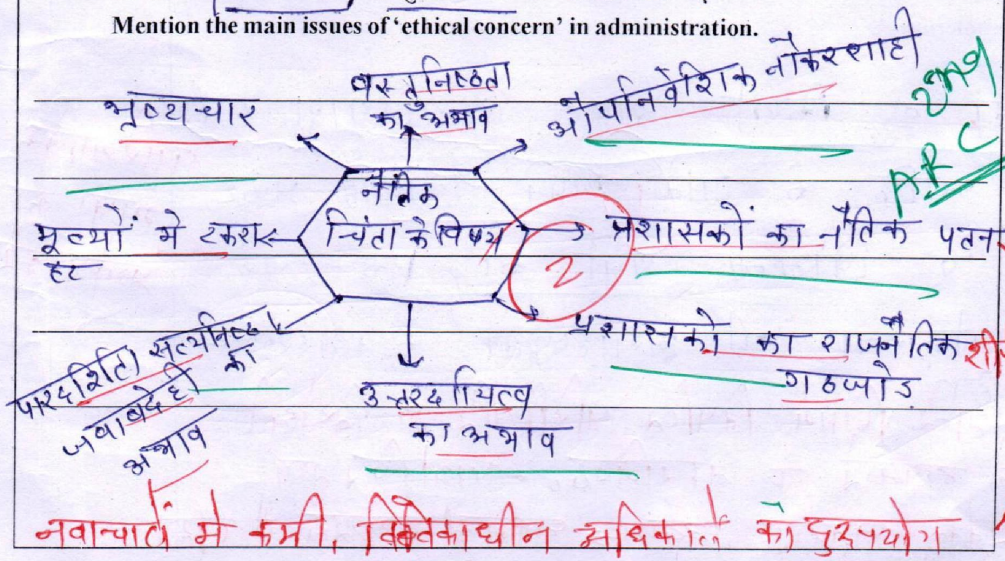 Mention the main issues of ‘ethical concern’ in administration.
वस्तुनिष्ठता
का अभाव
औपनिवेशिक नौकरशाही
भ्रष्यचार
ARC
नैतिक
चिंता के विषय
मूल्यों में टकरा
हट
2
प्रशासकों का नैतिक पतन
प्रशासको का राजनैतिक
गठजोड
पारदर्शिता सत्यनिष्ठा
जवाबदेही की
अभाव
उत्तरदायित्व
का अभाव
नवाचारों में कमी, विवेकाधीन अधिकारों का दुरुपयोग